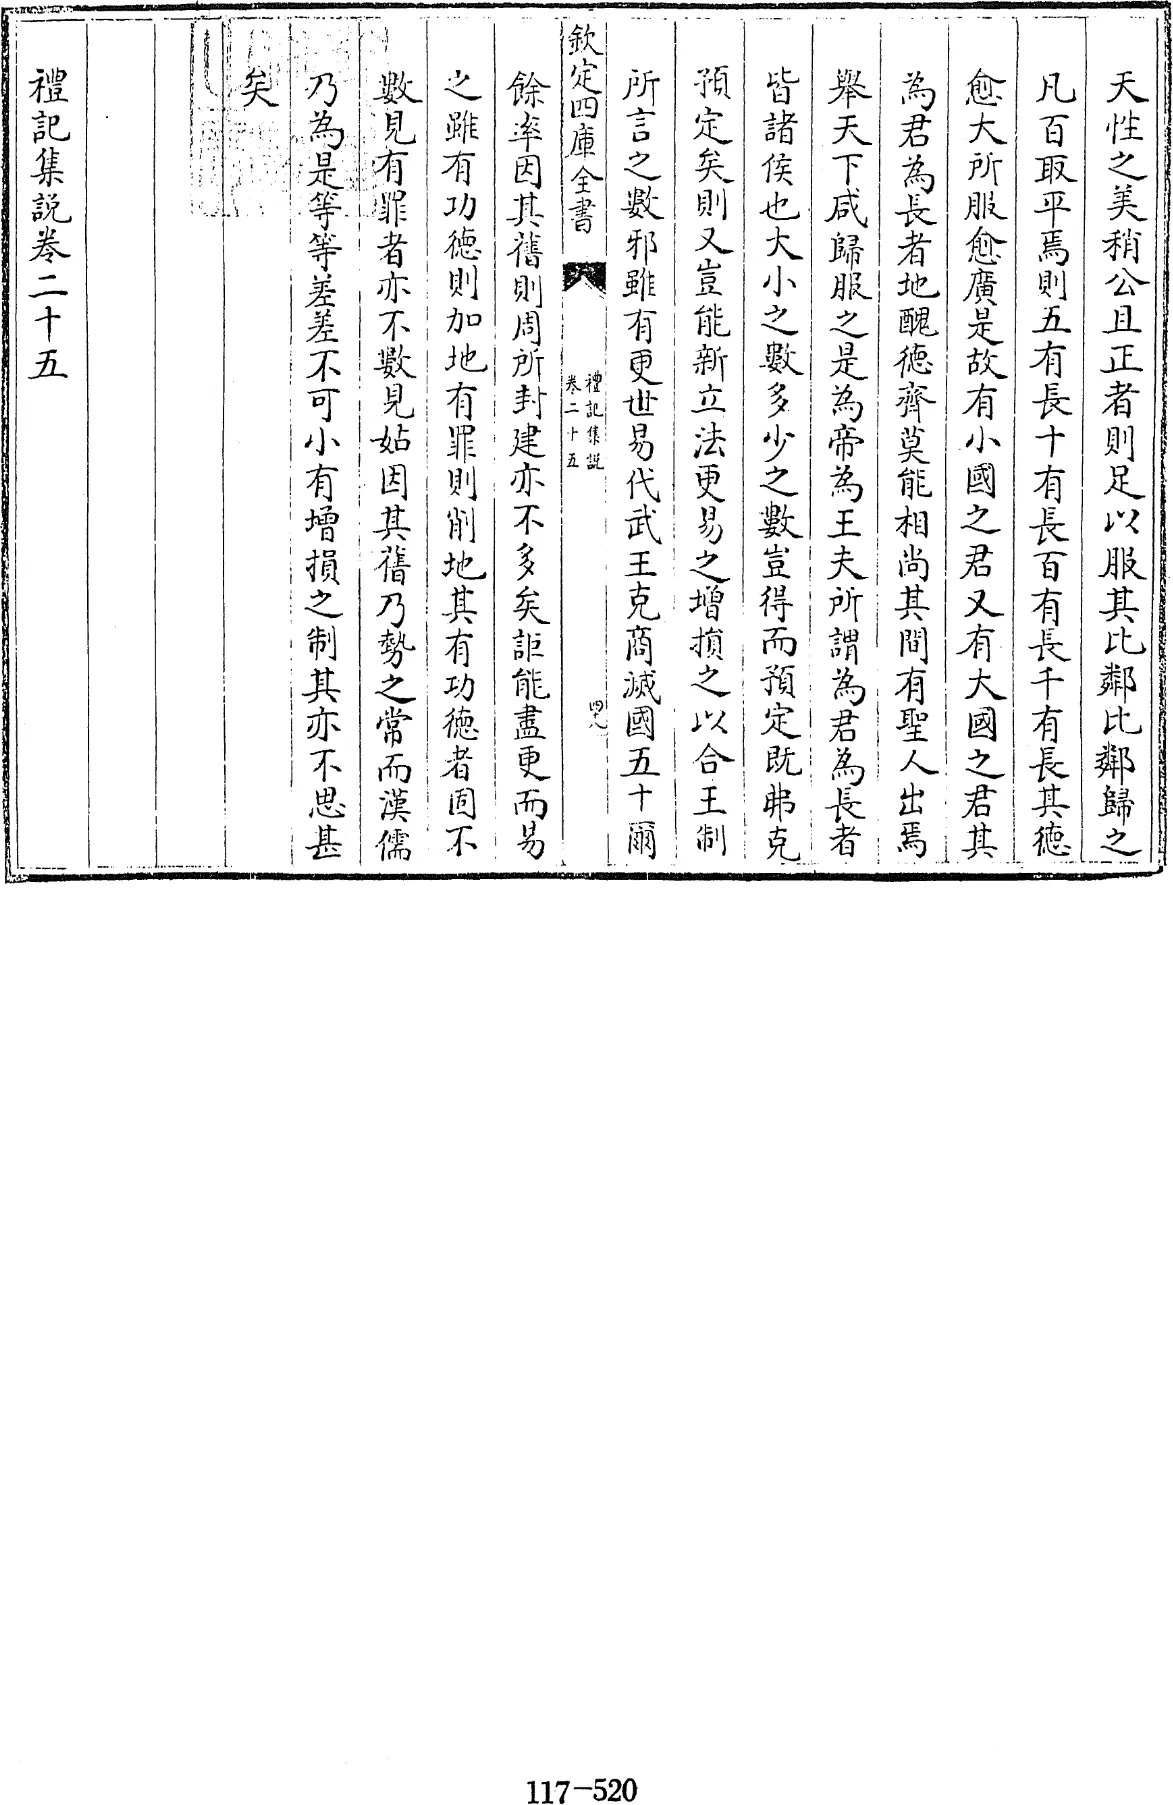 天性之美稍公且正者則足以服其比鄰比鄰歸之
凡百取平焉則五有長十有長百有長千有長其德
愈大所服愈廣是故有小國之君又有大國之君其
為君為長者地醜德齊莫能相尚其間有聖人出焉
舉天下咸歸服之是為帝為王夫所謂為君為長者
皆諸侯也大小之數多少之數豈得而預定既弗克
預定矣則又豈能新立法更易之增損之以合王制
所言之數邪雖有更世易代武王克商滅國五十爾
欽定四庫全書
禮記集說
卷二十五
四十八
餘率因其舊則周所封建亦不多矣詎能盡更而易
之雖有功德則加地有罪則削地其有功德者固不
數見有罪者亦不數見姑因其舊乃勢之常而漢儒
乃為是等等差差不可小有增損之制其亦不思甚
矣
禮記集說卷二十五
117-520